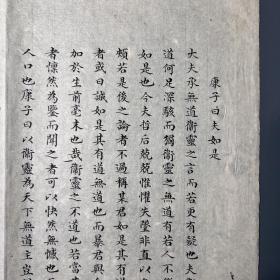 康子曰夫如是
大夫承無道衞靈之言而若更有疑也夫
道何足深駭而獨衞靈之無道有若人不
如是也今夫哲后兢兢惟懼失墜非直以
頗若是後之論者不過稱某君如是其有
者或曰誠如是其有道無道也而暴君與
加於生前毫末也哉衞靈之不道也若當
者慄然為鑒而聞之者可以快然無憾也
人口也康子曰以衞靈為天下無道主豈